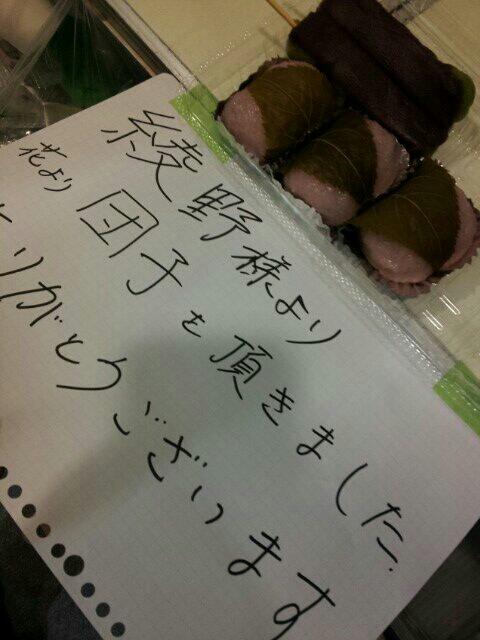 綾野様より
花より
団子を頂きました.
ありがとうございます